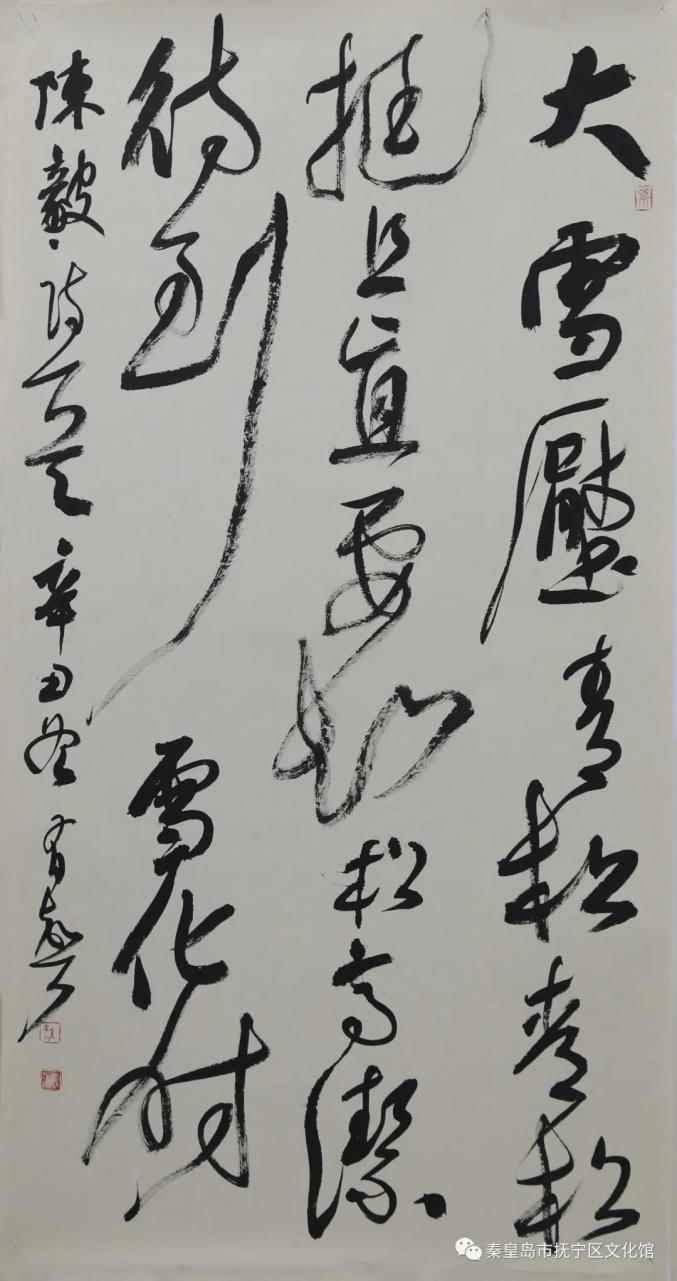 大雪壓青松青松
挺且直要知松高潔
待到雪化時
陳毅詩 辛丑冬
秦皇岛市抚宁区文化馆